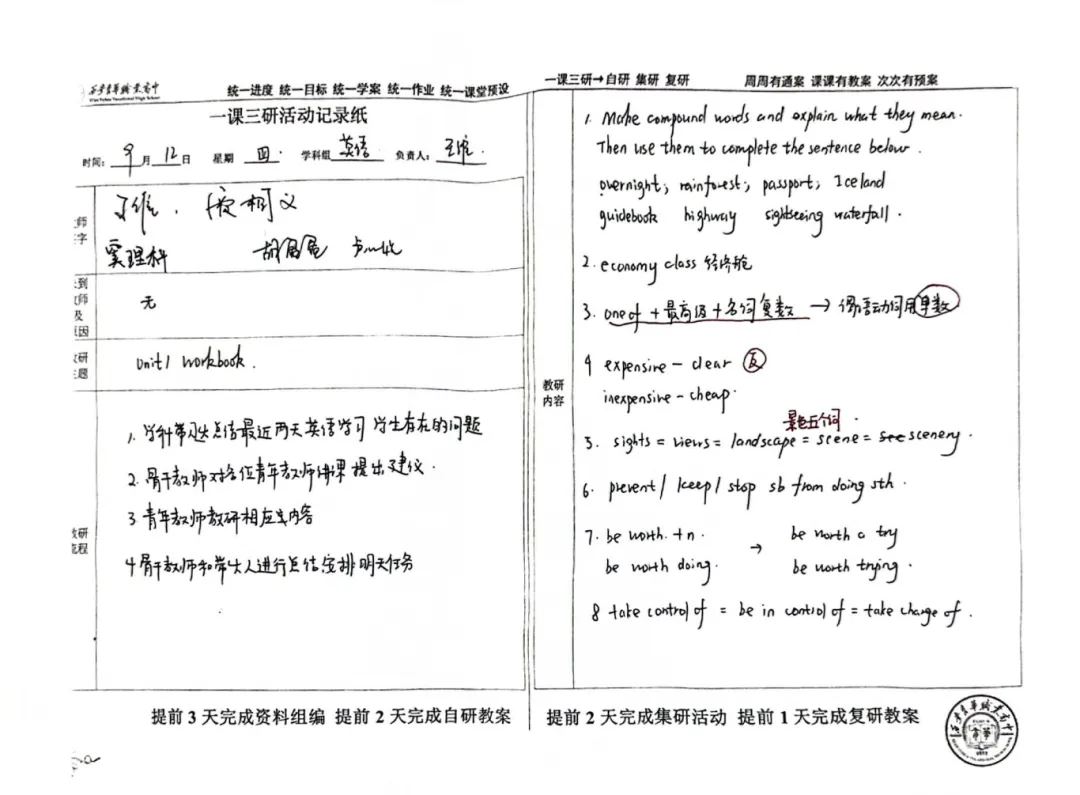 统一进度 统一目标 统一学案 统一作业 统一课堂预设
一课三研活动记录纸
时间: 9月12日 星期 四. 学科组 英语 负责人:
窦理科
无
Unit1 workbook.
教研
1. 最近两天英语学习 学生存在的问题
2. 骨干教师对各位青年教师讲课提出了建议.
3 青年教师教研相应内容
4 骨干教师和带头人进行总结安排明天任务
提前 3 天完成资料组编 提前 2 天完成自研教案
一课三研→自研 集研 复研 周周有通案 课课有教案 次次有预案
教研
内容
1. Make compound words and explain what they mean.
Then use them to complete the sentence below.
overnight; rainforest; passport; Iceland
guidebook highway sightseeing waterfall.
2. economy class 经济舱
3. one of + 最高级 + 名词复数 → 谓语动词用单数
4 expensive - clear 反
inexpensive - cheap.
景色五个词.
5. sights = views = landscape = scene = scenery.
6. prevent / keep / stop sb from doing sth.
7. be worth. + n. → be worth a try
be worth doing. be worth trying.
8 take control of = be in control of = take charge of.
提前 2 天完成集研活动 提前 1 天完成复研教案